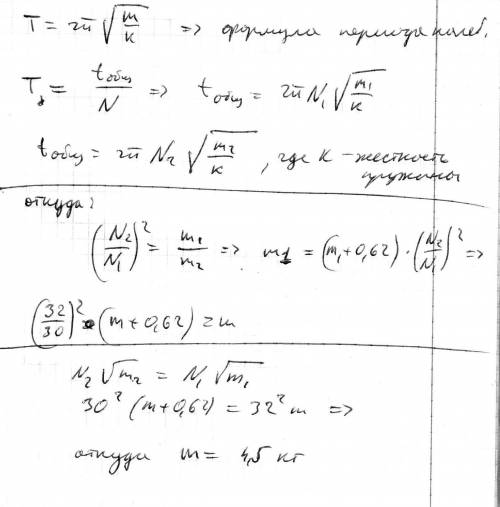 T = 2π √(m/k) => формула периода колеб.
T₁ = tобщ/N => tобщ = 2π N₁ √(m₁/k)
tобщ = 2π N₂ √(m₂/k), где k – жесткость
пружины
откуда:
(N₂/N₁)² = m₁/m₂ => m1 = (m₁+0,62)·(N₂/N₁)² =>
(32/30)² (m+0,62) = m
N₂ √m₂ = N₁ √m₁
30² (m+0,62) = 32² m =>
откуда m = 4,5 кг